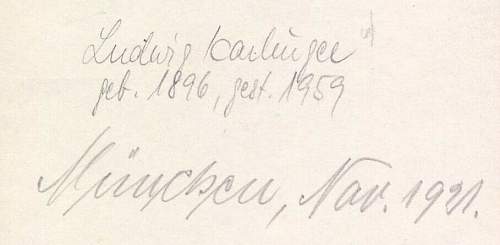 Ludwig Karlinger
geb. 1896, gest. 1959
München, Nov. 1921.